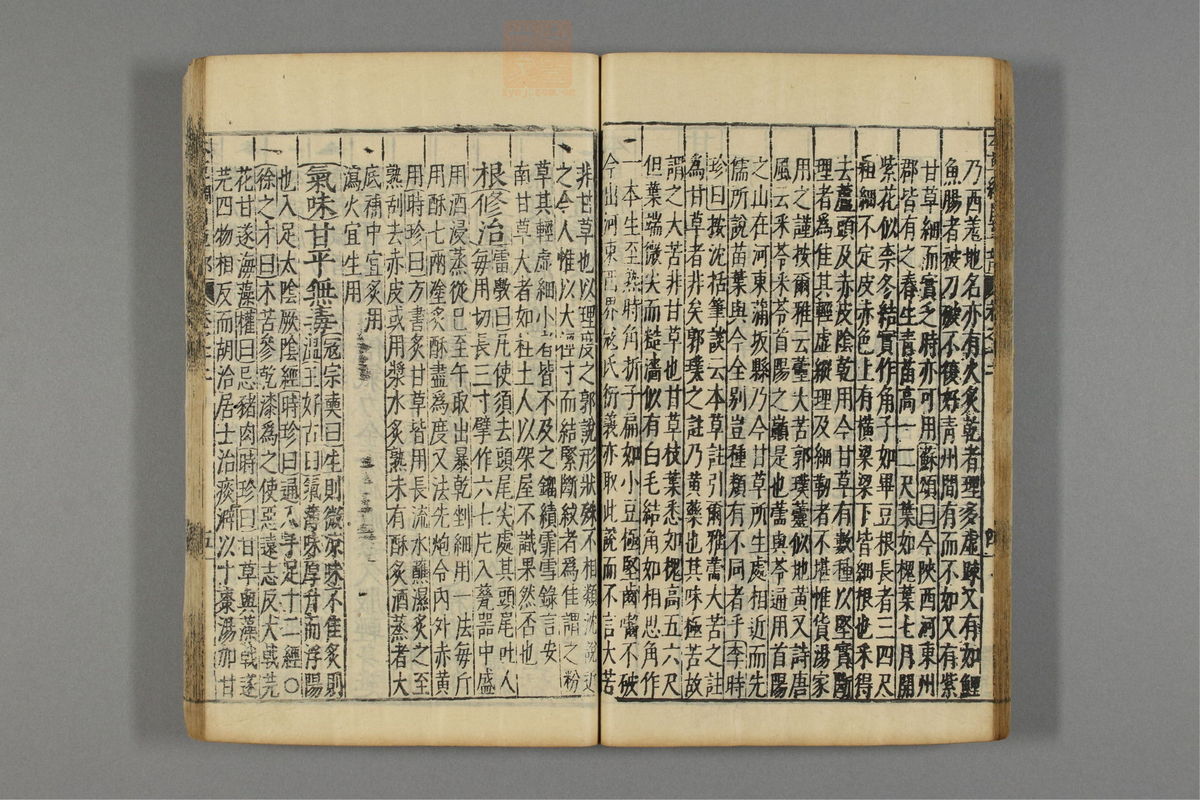 乃西羗地名亦有火炙乾者理多虛踈又有如鯉
魚腸者被刀破不復好青州間有而不如又有紫
甘草細而實乏時亦可用蘇頌曰今陝西河東州
郡皆有之春生青苗高一二尺葉如槐葉七月開
紫花似柰冬結實作角子如畢豆根長者三四尺
粗細不定皮赤色上有橫梁梁下皆細根也采得
去蘆頭及赤皮陰乾用今甘草有數種以堅實斷
理者爲佳其輕虛縱理及細靭者不堪惟貨湯家
用之謹按爾雅云蘦大苦郭璞蘦似地黃又詩唐
風云采苓采苓首陽之巔是也蘦與苓通用首陽
之山在河東蒲坂縣乃今甘草所生處相近而先
儒所說苗葉與今全別豈種類有不同者乎李時
珍曰按沈括筆談云本草註引爾雅蘦大苦之註
爲甘草者非矣郭璞之註乃黃藥也其味極苦故
謂之大苦非甘草也甘草枝葉悉如槐高五六尺
但葉端微尖而糙澀似有白毛結角如相思角作
一本生至熟時角折子扁如小豆極堅齒嚙不破
今出河東西界寇氏衍義亦取此說而不言大苦
非甘草也以理度之郭說形狀殊不相類沈說近
之今人惟以大徑寸而結緊斷紋者爲佳謂之粉
草其輕虛細小者皆不及之鎦績霏雪錄言安
南甘草大者如柱土人以架屋不識果然否也
根修治雷斆曰凡使須去頭尾尖處其頭尾吐人
每用切長三寸擘作六七片入瓷器中盛
用酒浸蒸從巳至午取出暴乾剉細用一法每斤
用酥七兩塗炙酥盡爲度又法先炮令內外赤黃
用時珍曰方書炙甘草皆用長流水蘸濕炙之至
熟刮去赤皮或用漿水炙熟未有酥炙酒蒸者大
底補中宜炙用
瀉火宜生用
氣味甘平無毒寇宗奭曰生則微涼味不佳炙則
溫王好古曰氣薄味厚升而浮陽
也入足太陰厥陰經時珍曰通入手足十二經○
徐之才曰朮苦參乾漆爲之使惡遠志反大戟芫
花甘遂海藻權曰忌豬肉時珍曰甘草與藻戟遂
芫四物相反而胡洽居士治痰澼以十棗湯加甘